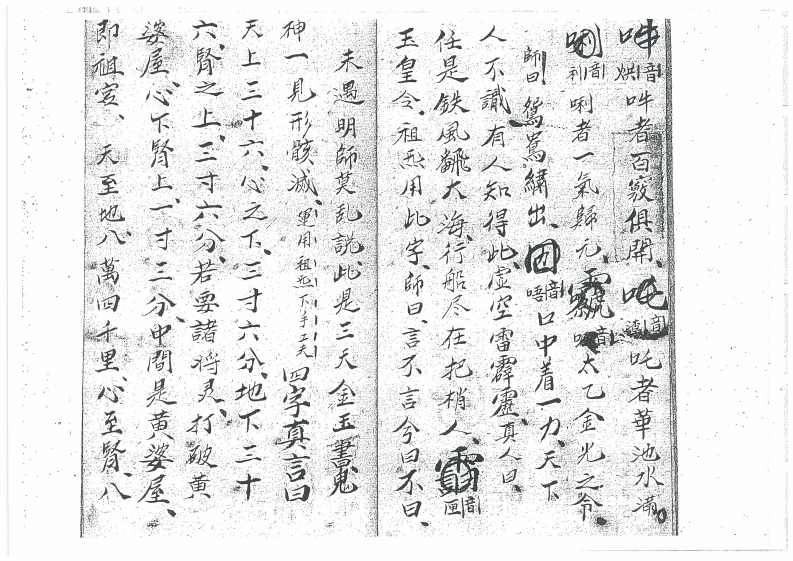 吽音烘吽者百竅俱開吒音吒者華池水滿
唎音利唎者一氣歸元音太乙金光之令
師曰鴛鴦繡出音唔口中着一力天下
人不識有人知得此虛空雷霹靂真人曰
任是鉄風飜大海行船尽在把梢人音匣
玉皇令祖炁用此字師曰言不言兮曰不曰
未遇明師莫乱說此是三天金玉書鬼
神一見形骸滅運用祖炁下手工夫四字真言曰
天上三十六心之下三寸六分地下三十
六腎之上三寸六分若要諸将灵打破黄
婆屋心下腎上一寸三分中間是黄婆屋
即祖宮天至地八萬四千里心至腎八